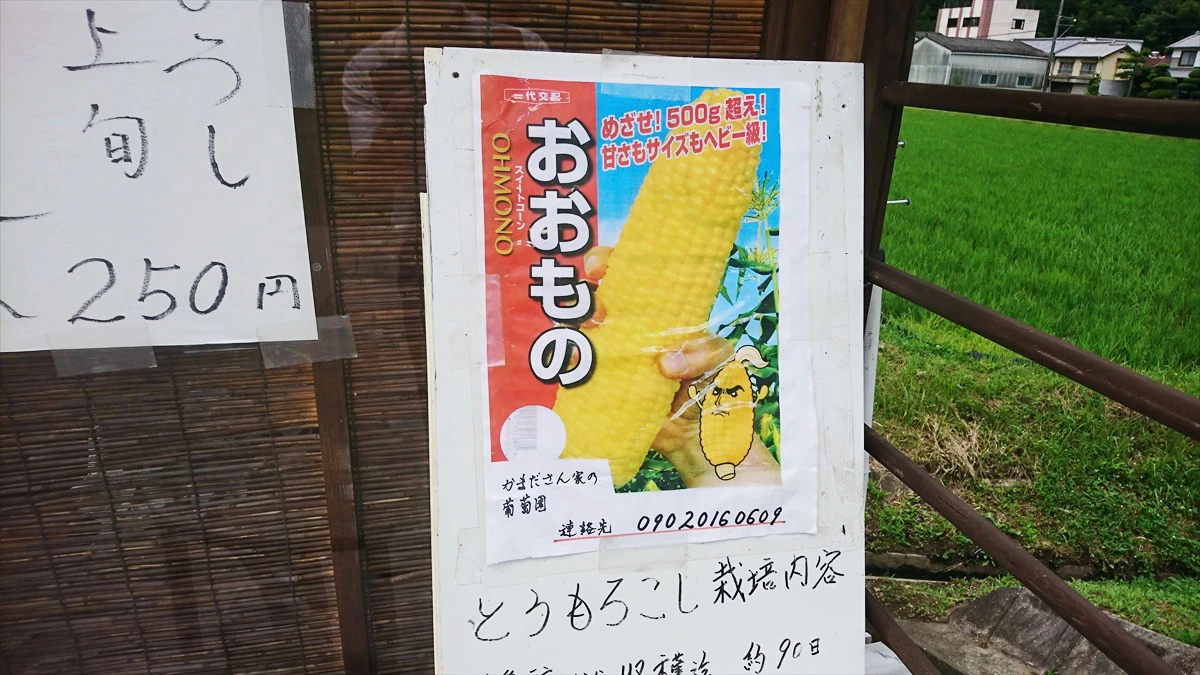 うろし
上旬
250円
一代交配
めざせ！500g超え！
甘さもサイズもヘビー級！
おおもの
スイートコーン
OHMONO
かまださん家の
葡萄園
連絡先 09020160609
とうもろこし栽培内容
収穫迄 約90日